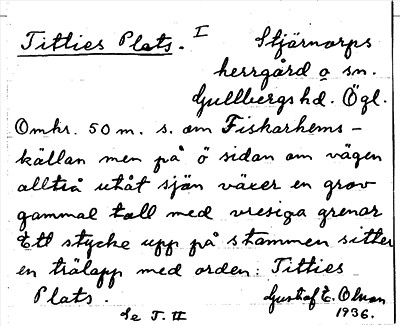 Titties Plats. I Stjärnorps
herrgård o sn.
Gullbergs hd. Ögl.
Omkr. 50 m. s. om Fiskarhems-
källan men på ö sidan om vägen
alltså utåt sjön växer en grov
gammal tall med vresiga grenar
Ett stycke upp på stammen sitter
en trälapp med orden: Titties
Plats. Gustaf E. Olson
Se T. II 1936.